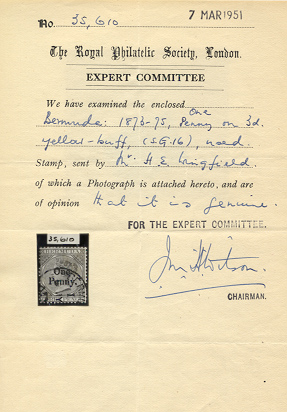 No. 35,610
7 MAR 1951
The Royal Philatelic Society, London.
EXPERT COMMITTEE
We have examined the enclosed
One
Bermuda: 1873-75, Penny on 3d.
yellow-buff, (S.G.16), used
Stamp, sent by Mr. H.E. Wingfield.
of which a Photograph is attached hereto, and are
of opinion that it is genuine.
FOR THE EXPERT COMMITTEE.
35,610
One
Penny.
CHAIRMAN.